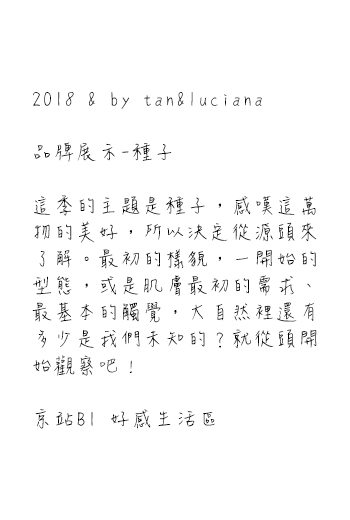 2018 & by tan&luciana
品牌展示-種子
這季的主題是種子，感嘆這萬
物的美好，所以決定從源頭來
了解。最初的樣貌，一開始的
型態，或是肌膚最初的需求、
最基本的觸覺，大自然裡還有
多少是我們未知的？就從頭開
始觀察吧！
京站B1 好感生活區